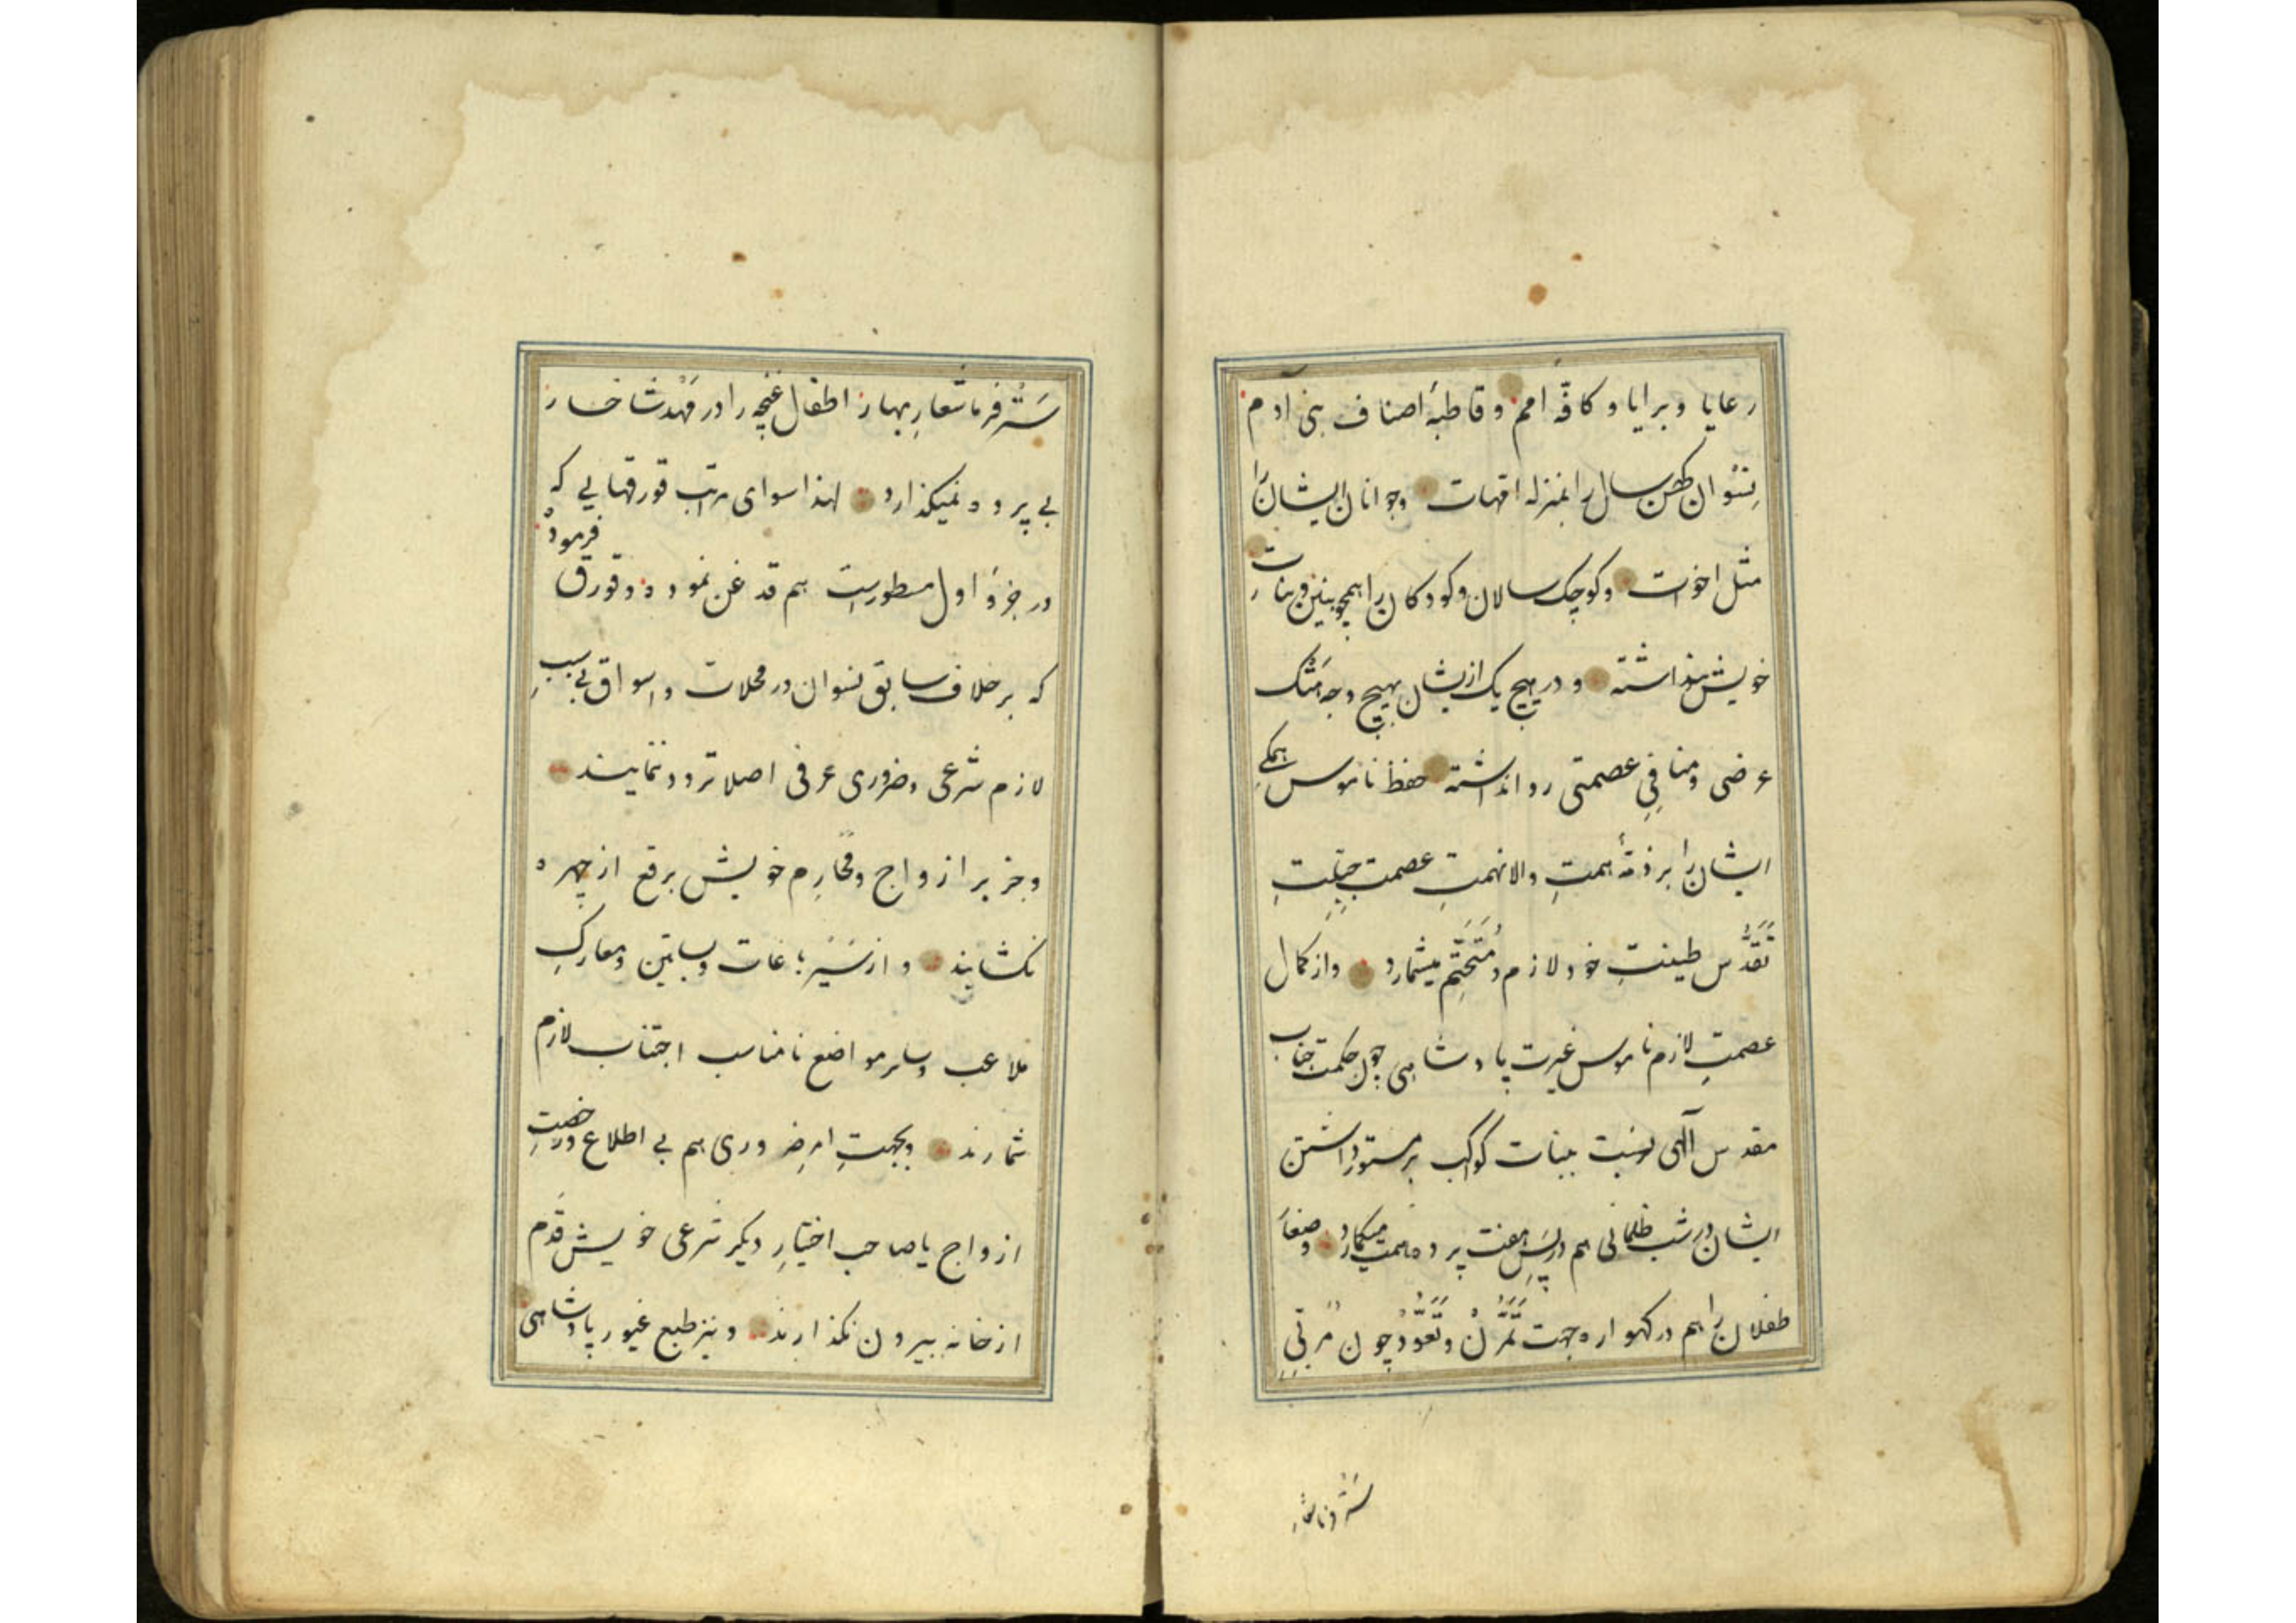 رعایا و برایا و کافّه امم و قاطبهٔ اصناف بنی آدم
نِسْوان کهن سال را بمنزله امّهات و جوانان ایشان را
مثل اخوات و کوچک سالان و کودکان را همچو بنین و بنات
خویش پنداشته و در هیچ یک از یشان بهیچ وجه هَتْک
عرضی و منافیِ عصمتی روا نداشته حفظ ناموس همکیِ
ایشان را بر ذمّهٔ همتِ والا نهمتِ عصمت جبلّتِ
تَقَدُّس طینتِ خود لازم و مُتَحَتِّم میشمارد و از کمال
عصمتِ لازم ناموس غیرت پادشاهی چون حکمت جناب
مقدس آلهی نسبت ببنات کواکب بر مستور داشتن
ایشان در شب ظلمانی هم در پسِ هفت پرده همت میکمارد و صغار
طفلان را هم در کهواره جهت تَمَرُّن و تَعَوُّد چون مربّیِ
سَتْر فرما شعار
سَتْر فرما شعارِ بهار اطفال غنچه را در مَهْد شاخسار
بی پرده نمیکذارد لهذا سوای مراتب قورقهایی که
در جزو اول مسطور است هم قدغن نموده و قورق فرموده
که بر خلاف سابق نسوان در محلات و اسواق بی سببِ
لازم شرعی و ضروری عرفی اصلا تردد ننمایند
و جز بر ازواج و محارِم خویش برقع از چهره
نکشایند و از سَیْر باغات و بساتین و معارکِ
ملاعب و سایر مواضع نامناسب اجتناب لازم
شمارند و بجهتِ امر ضروری هم بی اطلاع و رخصتِ
ازواج یا صاحب اختیارِ دیکر شرعی خویش قَدَم
از خانه بیرون نکذارند و نیز طبع غیور پادشاهی